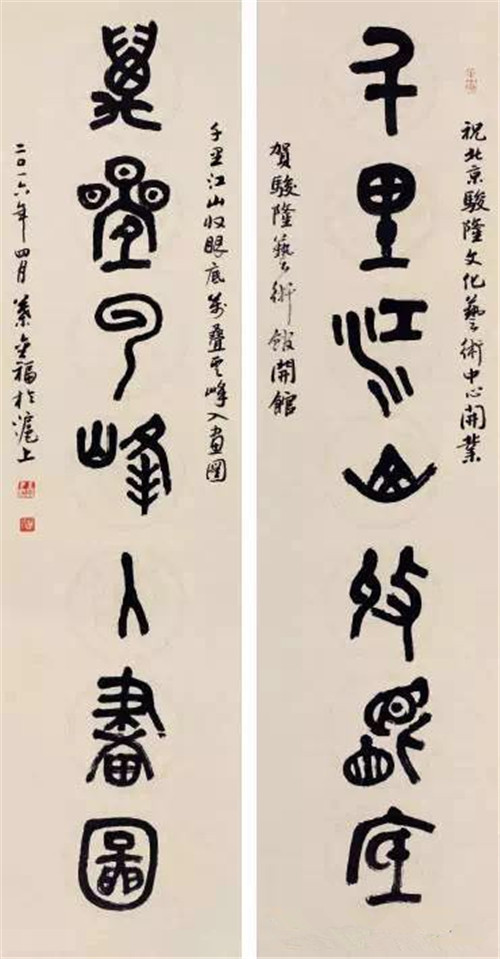 祝北京駿隆文化藝術中心開業
千里江山收眼底
賀駿隆藝術館開館
千里江山收眼底萬叠雲峰入畫圖
萬疊雲峰入畫圖
二〇一六年四月 金福於滬上